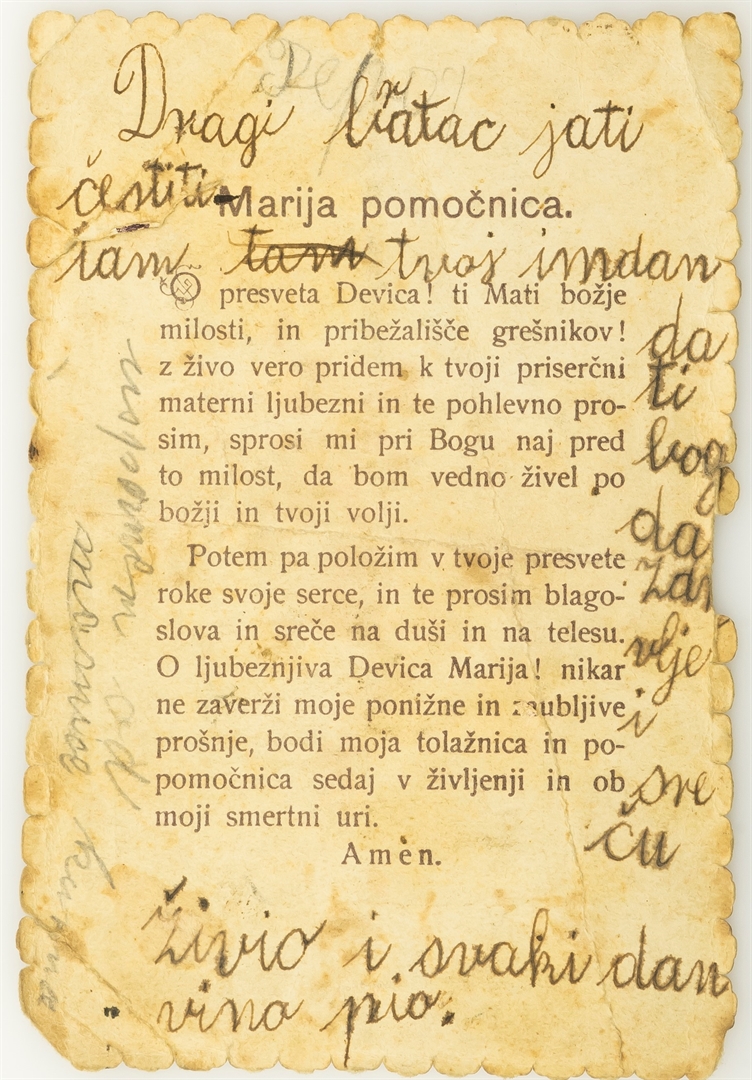 Dragi bratac jati
čestiti
Marija pomočnica.
iam tam tvoj imdan
O presveta Devica! ti Mati božje
milosti, in pribežališče grešnikov!
z živo vero pridem k tvoji priserčni
materni ljubezni in te pohlevno pro-
sim, sprosi mi pri Bogu naj pred
to milost, da bom vedno živel po
božji in tvoji volji.
Potem pa položim v tvoje presvete
roke svoje serce, in te prosim blago-
slova in sreče na duši in na telesu.
O ljubeznjiva Devica Marija! nikar
ne zaverži moje ponižne in zaubljive
prošnje, bodi moja tolažnica in po-
pomočnica sedaj v življenji in ob
moji smertni uri.
Amen.
da
ti
bog
da
zdr
vlje
i
sre
ču
živio i svaki dan
vino pio.
uspomena od